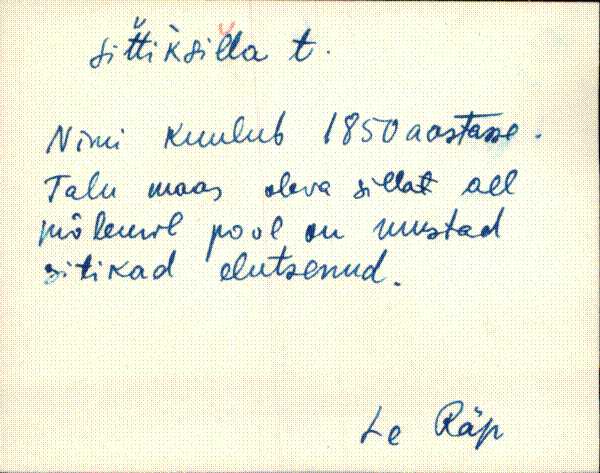 sittiksilla t.
Nimi kuulub 1850 aastasse.
Talu maas oleva sillat all
mõlemil pool on mustad
sitikad elutsenud.
Le Räp